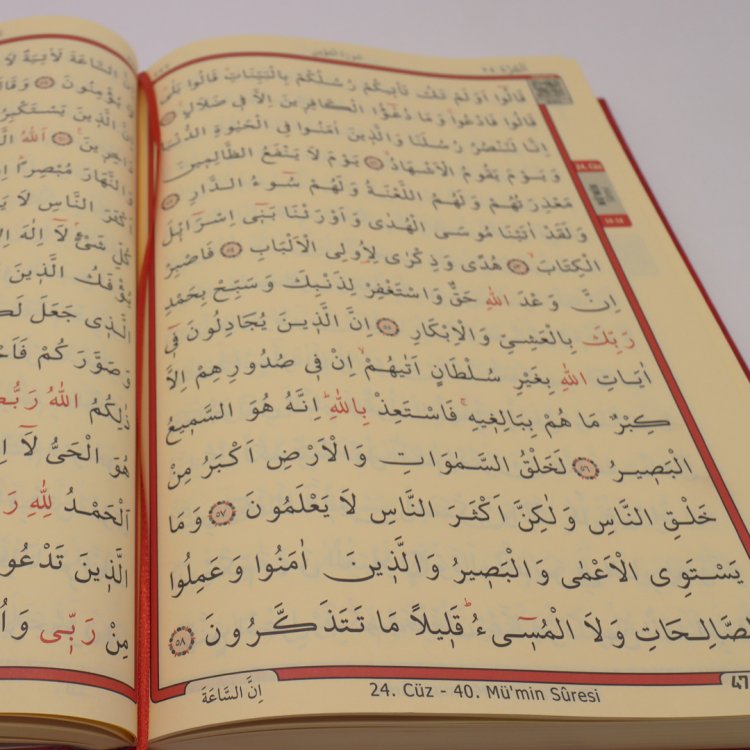 قَالُٓوا اَوَلَمْ تَكُ تَأْت۪يكُمْ رُسُلُكُمْ بِالْبَيِّنَاتِۜ قَالُوا بَلٰىۜ
قَالُوا فَادْعُواۚ وَمَا دُعٰٓؤُا الْكَافِر۪ينَ اِلَّا ف۪ي ضَلَالٍ۟ ٥٠
اِنَّا لَنَنْصُرُ رُسُلَنَا وَالَّذ۪ينَ اٰمَنُوا فِي الْحَيٰوةِ الدُّنْيَا
وَيَوْمَ يَقُومُ الْاَشْهَادُۙ ٥١ يَوْمَ لَا يَنْفَعُ الظَّالِم۪ينَ
مَعْذِرَتُهُمْ وَلَهُمُ اللَّعْنَةُ وَلَهُمْ سُٓوءُ الدَّارِ ٥٢
وَلَقَدْ اٰتَيْنَا مُوسَى الْهُدٰى وَاَوْرَثْنَا بَن۪ٓي اِسْرَٓائ۪لَ
الْكِتَابَۙ ٥٣ هُدًى وَذِكْرٰى لِاُو۬لِي الْاَلْبَابِ ٥٤ فَاصْبِرْ
اِنَّ وَعْدَ اللّٰهِ حَقٌّ وَاسْتَغْفِرْ لِذَنْبِكَ وَسَبِّحْ بِحَمْدِ
رَبِّكَ بِالْعَشِيِّ وَالْاِبْكَارِ ٥٥ اِنَّ الَّذ۪ينَ يُجَادِلُونَ ف۪ٓي
اٰيَاتِ اللّٰهِ بِغَيْرِ سُلْطَانٍ اَتٰيهُمْۙ اِنْ ف۪ي صُدُورِهِمْ اِلَّا
كِبْرٌ مَا هُمْ بِبَالِغ۪يهِۚ فَاسْتَعِذْ بِاللّٰهِۜ اِنَّهُ هُوَ السَّم۪يعُ
الْبَص۪يرُ ٥٦ لَخَلْقُ السَّمٰوَاتِ وَالْاَرْضِ اَكْبَرُ مِنْ
خَلْقِ النَّاسِ وَلٰكِنَّ اَكْثَرَ النَّاسِ لَا يَعْلَمُونَ ٥٧ وَمَا
يَسْتَوِي الْاَعْمٰى وَالْبَص۪يرُ وَالَّذ۪ينَ اٰمَنُوا وَعَمِلُوا
الصَّالِحَاتِ وَلَا الْمُس۪ٓيءُۜ قَل۪يلاً مَا تَتَذَكَّرُونَ ٥٨
اِنَّ السَّاعَةَ
24. Cüz - 40. Mü'min Sûresi
47
24. Cüz
اِنَّ السَّاعَةَ لَاٰتِيَةٌ لَا
لَا يُؤْمِنُونَ ٥٩ وَقَالَ
اِنَّ الَّذ۪ينَ يَسْتَكْبِرُ
دَاخِر۪ينَ۟ ٦٠ اَللّٰهُ
وَالنَّهَارَ مُبْصِراًۜ
اَكْثَرَ النَّاسِ لَا
كُلِّ شَيْءٍۢ لَٓا اِلٰهَ
يُؤْفَكُ الَّذ۪ينَ
الَّذ۪ي جَعَلَ
وَصَوَّرَكُمْ
ذٰلِكُمُ اللّٰهُ
هُوَ الْحَيُّ لَٓا
اَلْحَمْدُ لِلّٰهِ
الَّذ۪ينَ تَدْعُو
مِنْ رَبّ۪ي